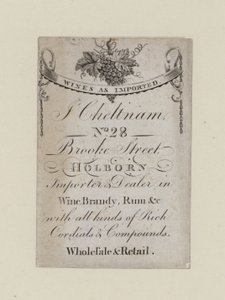 WINES AS IMPORTED
J. Cheltnam,
No. 28
Brooke Street
HOLBORN
Importer & Dealer in
Wine, Brandy, Rum &c
with all kinds of Rich
Cordials & Compounds.
Wholesale & Retail.